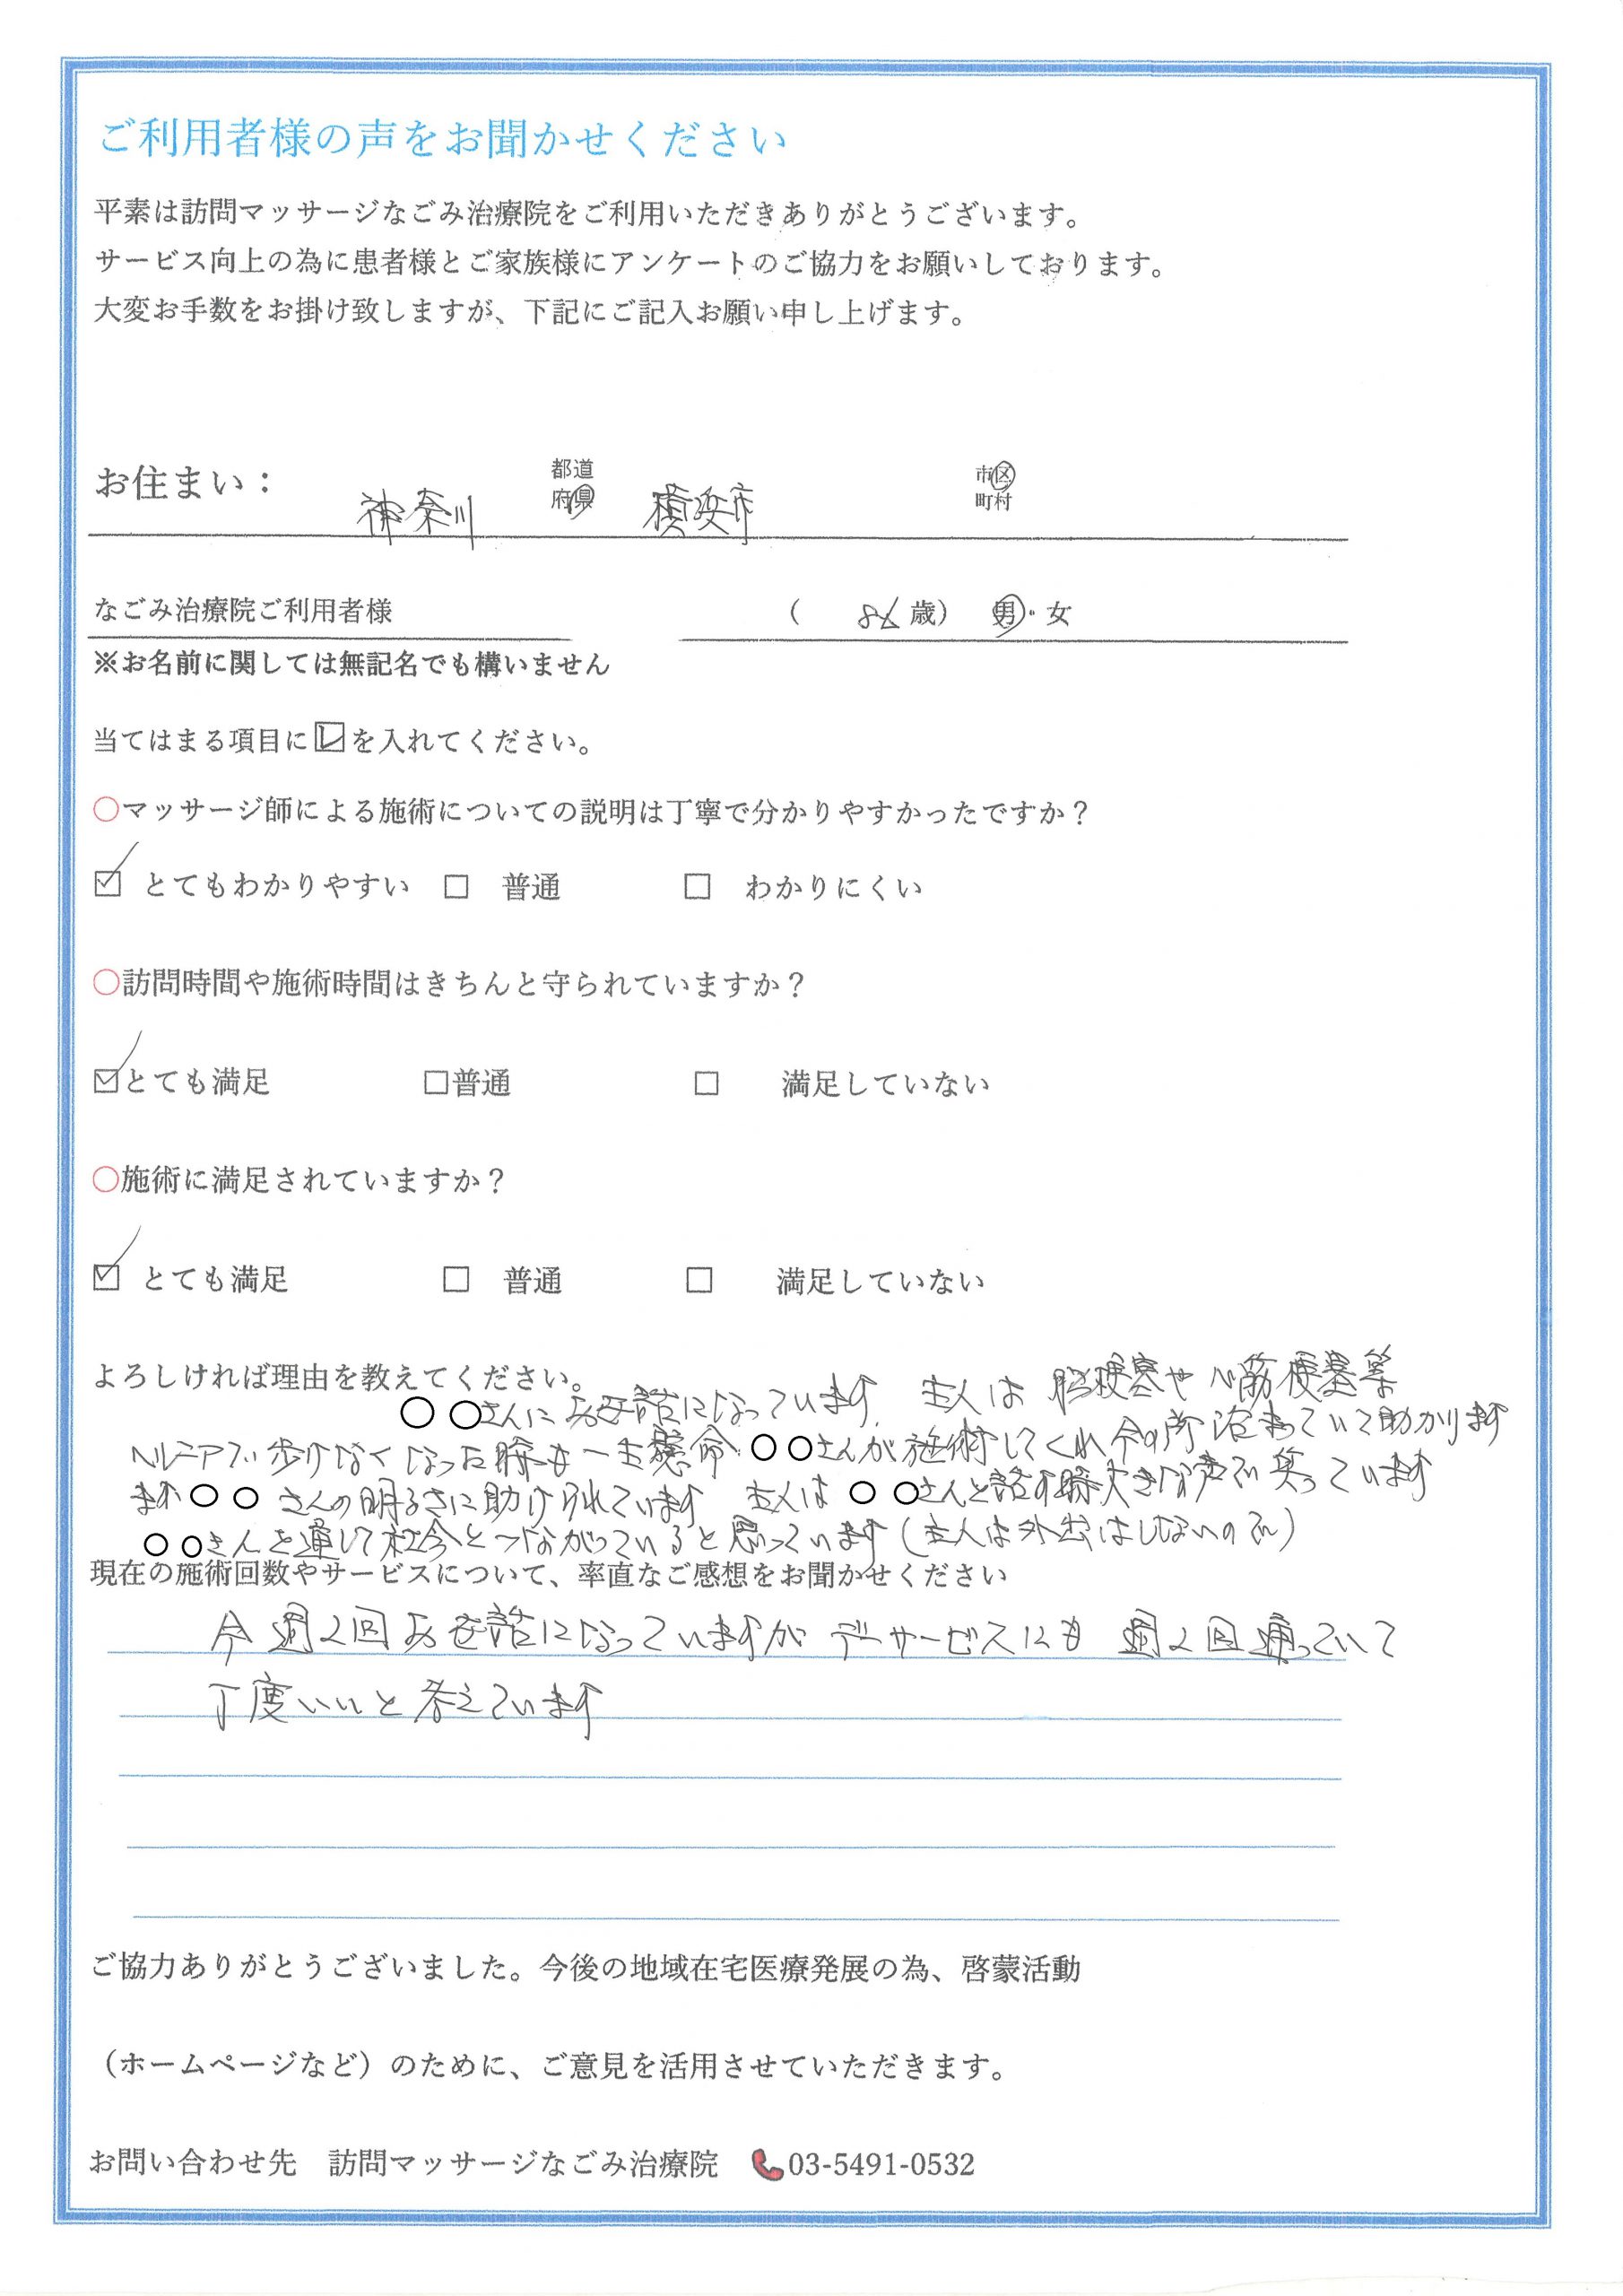 ご利用者様の声をお聞かせください
平素は訪問マッサージなごみ治療院をご利用いただきありがとうございます。
サービス向上の為に患者様とご家族様にアンケートのご協力をお願いしております。
大変お手数をお掛け致しますが、下記にご記入お願い申し上げます。
お住まい： 神奈川 都道府県 横浜市 市区町村
なごみ治療院ご利用者様 （ 86歳） 男・女
※お名前に関しては無記名でも構いません
当てはまる項目に☑を入れてください。
〇マッサージ師による施術についての説明は丁寧で分かりやすかったですか？
☑ とてもわかりやすい □ 普通 □ わかりにくい
〇訪問時間や施術時間はきちんと守られていますか？
☑とても満足 □普通 □ 満足していない
〇施術に満足されていますか？
☑ とても満足 □ 普通 □ 満足していない
よろしければ理由を教えてください。
○○さんにお世話になっています 主人は 脳梗塞や心筋梗塞等
ヘルニアで歩けなくなった時も一生懸命○○さんが施術してくれ今の所治まっていて助かります
ます○○さんの明るさに助けられています 主人は○○さんと話す時大きな声で笑っています
○○さんを通して社会とつながっていると思っています（主人は外出はしないので）
現在の施術回数やサービスについて、率直なご感想をお聞かせください
今週2回お世話になっていますが デーサービスにも 週2回通っていて
丁度いいと考えています
ご協力ありがとうございました。今後の地域在宅医療発展の為、啓蒙活動
（ホームページなど）のために、ご意見を活用させていただきます。
お問い合わせ先 訪問マッサージなごみ治療院 03-5491-0532